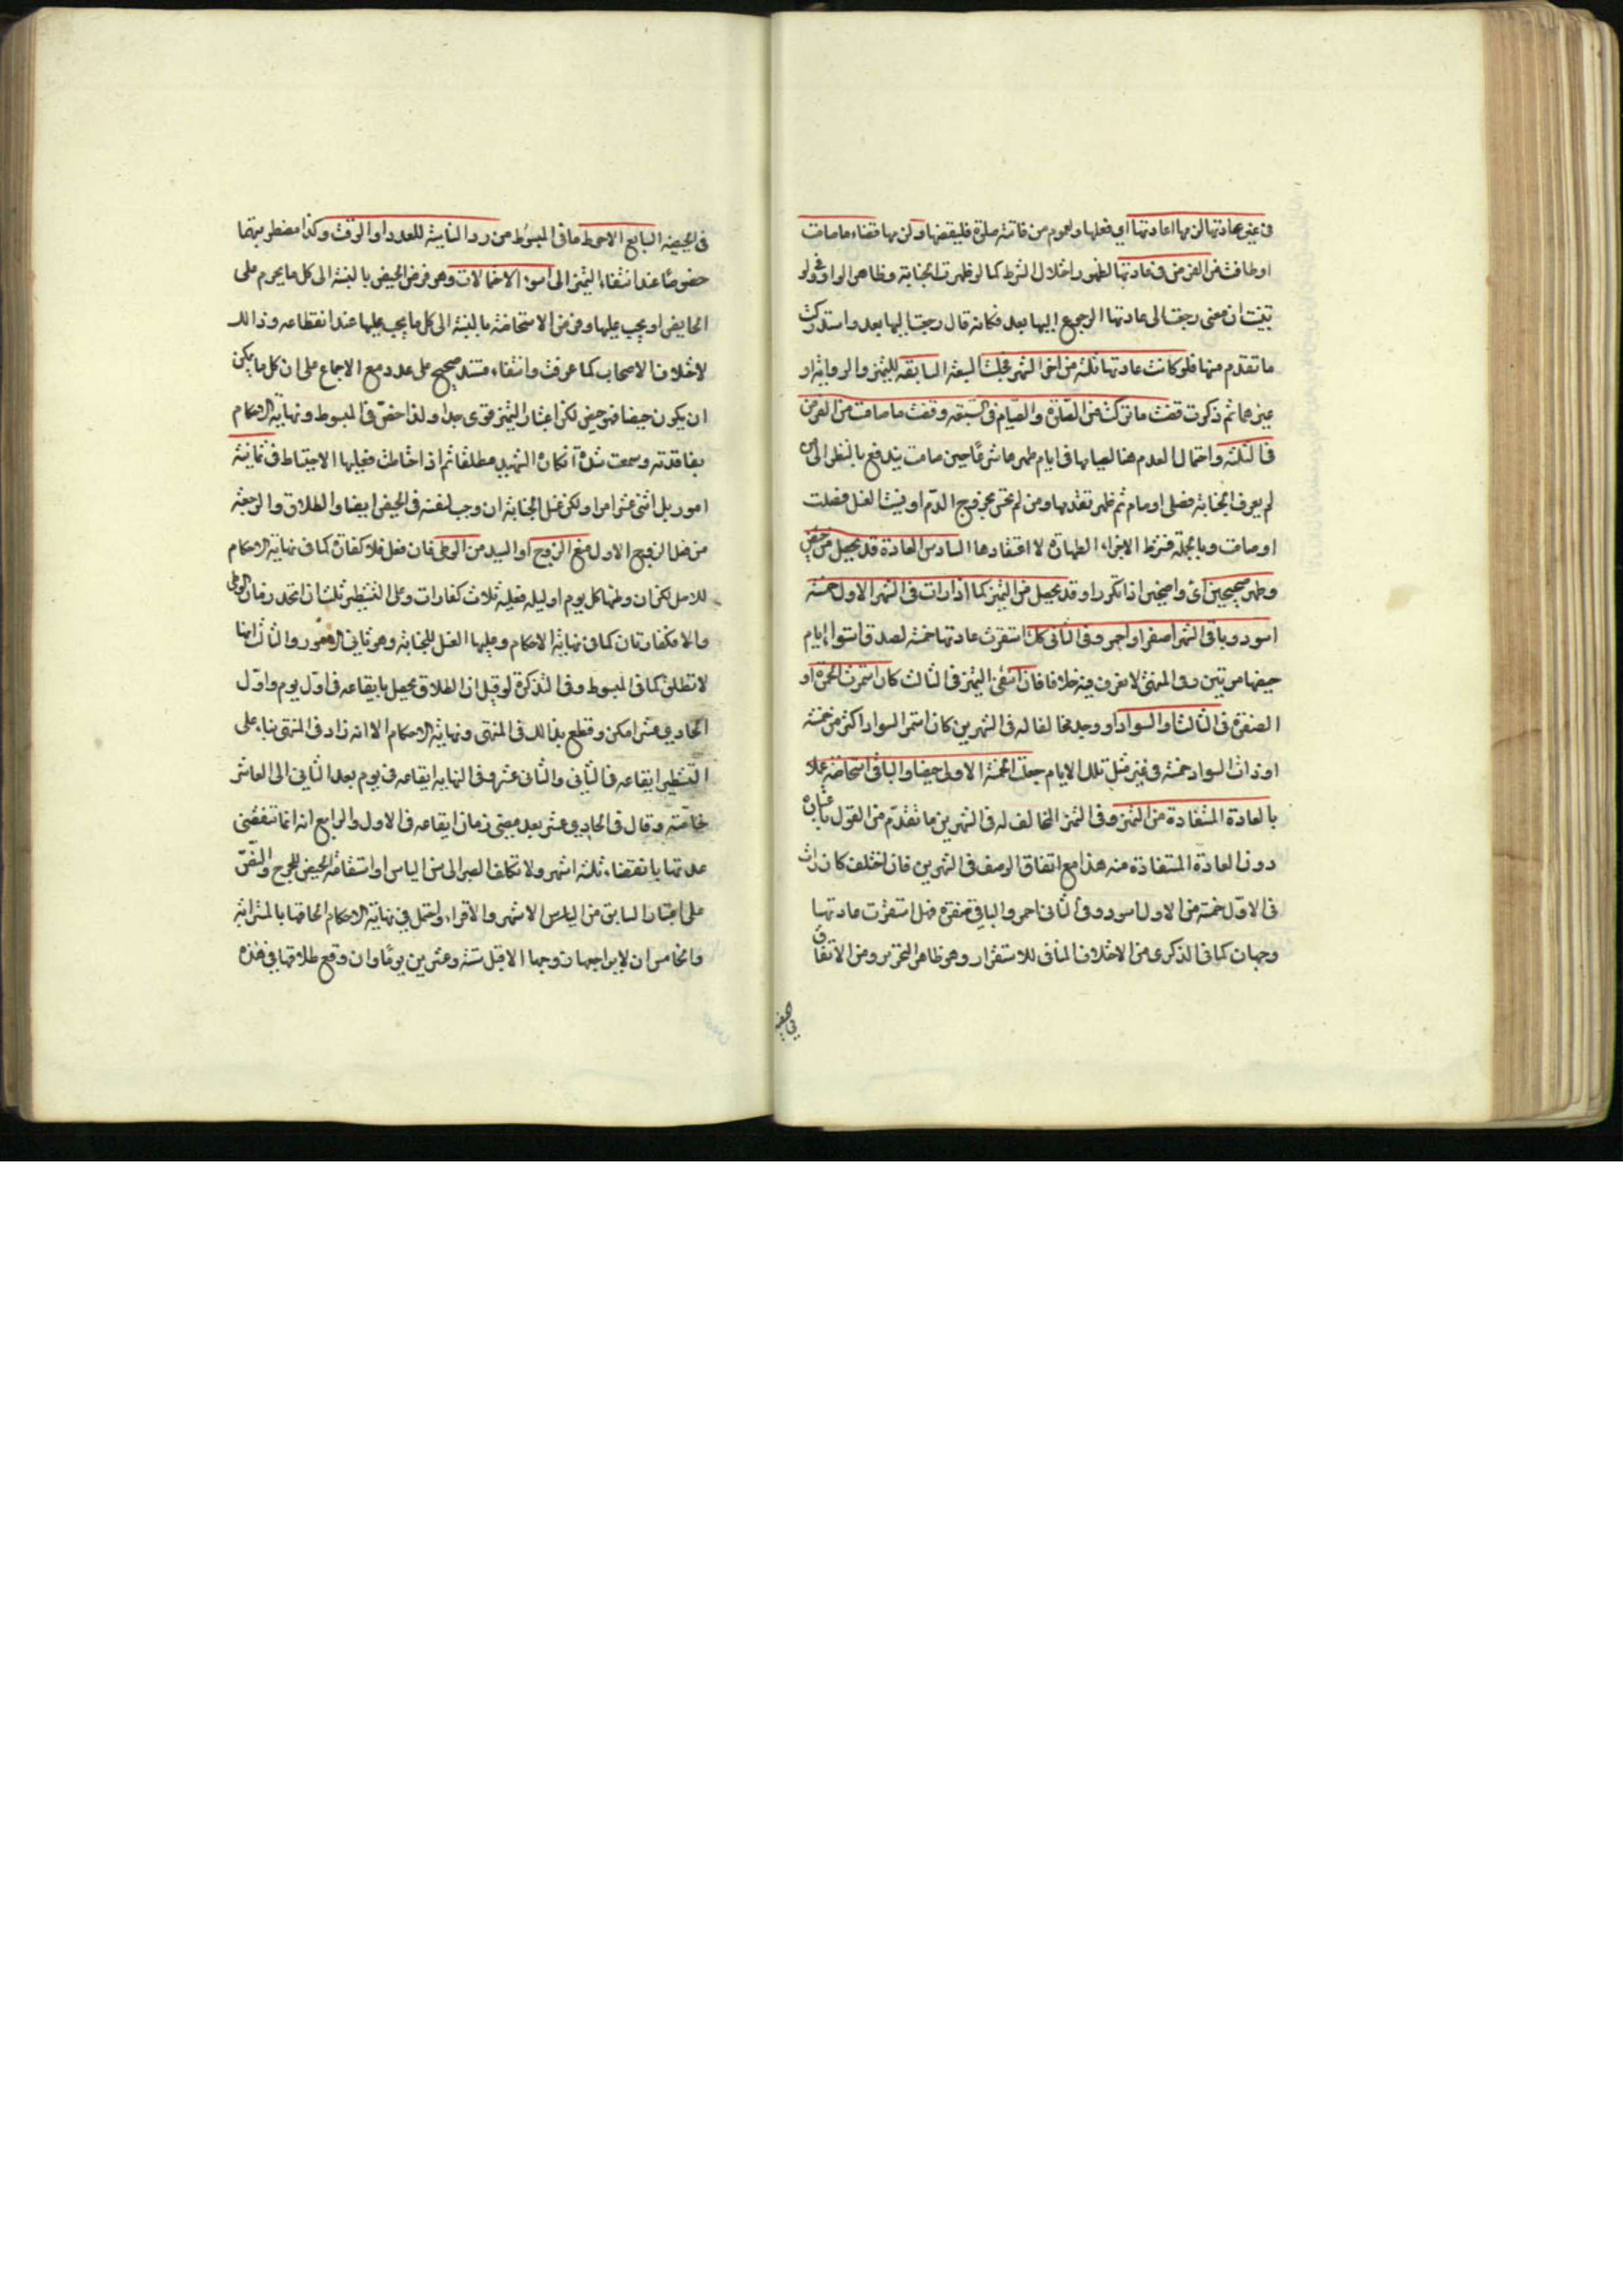 في غير عادتها لزمها اعادتها اي فعلها ولعموم من فاتته صلوة فليقضها ولزمها قضاء ما صامت
او طافت من الفرض في عادتها لظهور اختلال الشرط كما لو ظهرت الجنابة وظاهر الواو في ولو
تبينت ان معنى رجعت الى عادتها الرجوع اليها بعد فكانه قال رجعت اليها بعد واستدركت
ما تقدم منها فلو كانت عادتها ثلثة من اخر الشهر فجلست السبعة السابقة للتميز والرواية او
غيرهما ثم ذكرت قضت ما تركت من الصلوة والصيام في السبعة وقضت ما صامت من الفرض
في الثلثة واحتمال العدم هنا لصيامها في ايام طهرها شرعا حين صامت يندفع بالنظر الى من
لم يعرف الجنابة فصلى او صام ثم ظهر تقدمها ومن لم تحس بخروج الدم او نسيت الغسل فصلت
او صامت وبالجملة فشرط الاجزاء الطهارة لا اعتقادها السادس العادة قد تحصل من حيض
وطهر صحيحين اي واضحين اذا تكررا وقد تحصل من التميز كما اذا رات في الشهر الاول خمسة
اسود وباقي الشهر اصفر او احمر وفي الثاني كك استقرت عادتها خمسة لصدق استواء ايام
حيضها مرتين وفي المنتهى لا نعرف فيه خلافا فان انتفى التميز في الثالث كان استمرت الحمرة او
الصفرة في الثالث او السواد او وجد مخالفا له في الشهرين كان استمر السواد اكثر من خمسة
او رات السواد خمسة في غير مثل تلك الايام جعلت الخمسة الاولى حيضا والباقي استحاضة عملا
بالعادة المستفادة من التميز وفي التميز المخالف له في الشهرين ما تقدم من القول باعتباره
دون العادة المستفادة منه هذا مع اتفاق الوصف في الشهرين فان اختلف كان رات
في الاول خمسة من الاول اسود وفي الثاني احمر والباقي صفرة فهل استقرت عادتها
وجهان كما في الذكرى من الاختلاف المنافي للاستقرار وهو ظاهر التحرير ومن الاتفاق
في الحيضية السابع الاحوط ما في المبسوط من رد الناسية للعدد او الوقت وكذا مضطربتهما
خصوصا عند انتفاء التميز الى اسوء الاحتمالات وهو فرض الحيض بالنسبة الى كل ما يحرم على
الحايض او يجب عليها وفرض الاستحاضة بالنسبة الى كل ما يجب عليها عند انقطاعه وذلك
لاختلاف الاصحاب كما عرفت وانتفاء مستند صحيح على عدد مع الاجماع على ان كل ما يمكن
ان يكون حيضا فهو حيض لكن اعتبار التميز قوي جدا ولذا خص في المبسوط ونهاية الاحكام
بفاقدته وسمعت شدة انكار الشهيد مطلقا ثم اذا احتاطت فعليها الاحتياط في ثمانية
امور بل اثنى عشر امرا ولكن غسل الجنابة ان وجب لنفسه في الحيض ايضا والطلاق والرجعة
من فعل الزوج الاول منع الزوج او السيد من الوطى فان فعل فلا كفارة كما في نهاية الاحكام
للاصل لكن ان وطئها كل يوم او ليلة فعليه ثلاث كفارات وعلى التشطير ثلث ان اتحد زمان الوطي
والا فكفارتان كما في نهاية الاحكام وعليها الغسل للجنابة وهو ثاني الامور والثالث انها
لا تطلق كما في المبسوط وفي التذكرة لو قيل ان الطلاق يحصل بايقاعه في اول يوم واول
الحادي عشر امكن وقطع بذلك في المنتهى ونهاية الاحكام الا انه زاد في المنتهى بناء على
التشطير ايقاعه في الثاني والثاني عشر وفي النهاية ايقاعه في يوم بعد الثاني الى العاشر
خاصة وقال في الحادي عشر بعد مضي زمان ايقاعه في الاول والرابع انه انما تنقضي
عدتها بانقضاء ثلثة اشهر ولا تكلف الصبر الى سن الياس او استقامة الحيض للحرج والنص
على اعتبار السابق من الاشهر والاقراء واحتمل في نهاية الاحكام الحاقها بالمسترابة
والخامس ان لا يراجعها زوجها الا قبل ستة وعشرين يوما وان وقع طلاقها في هذه